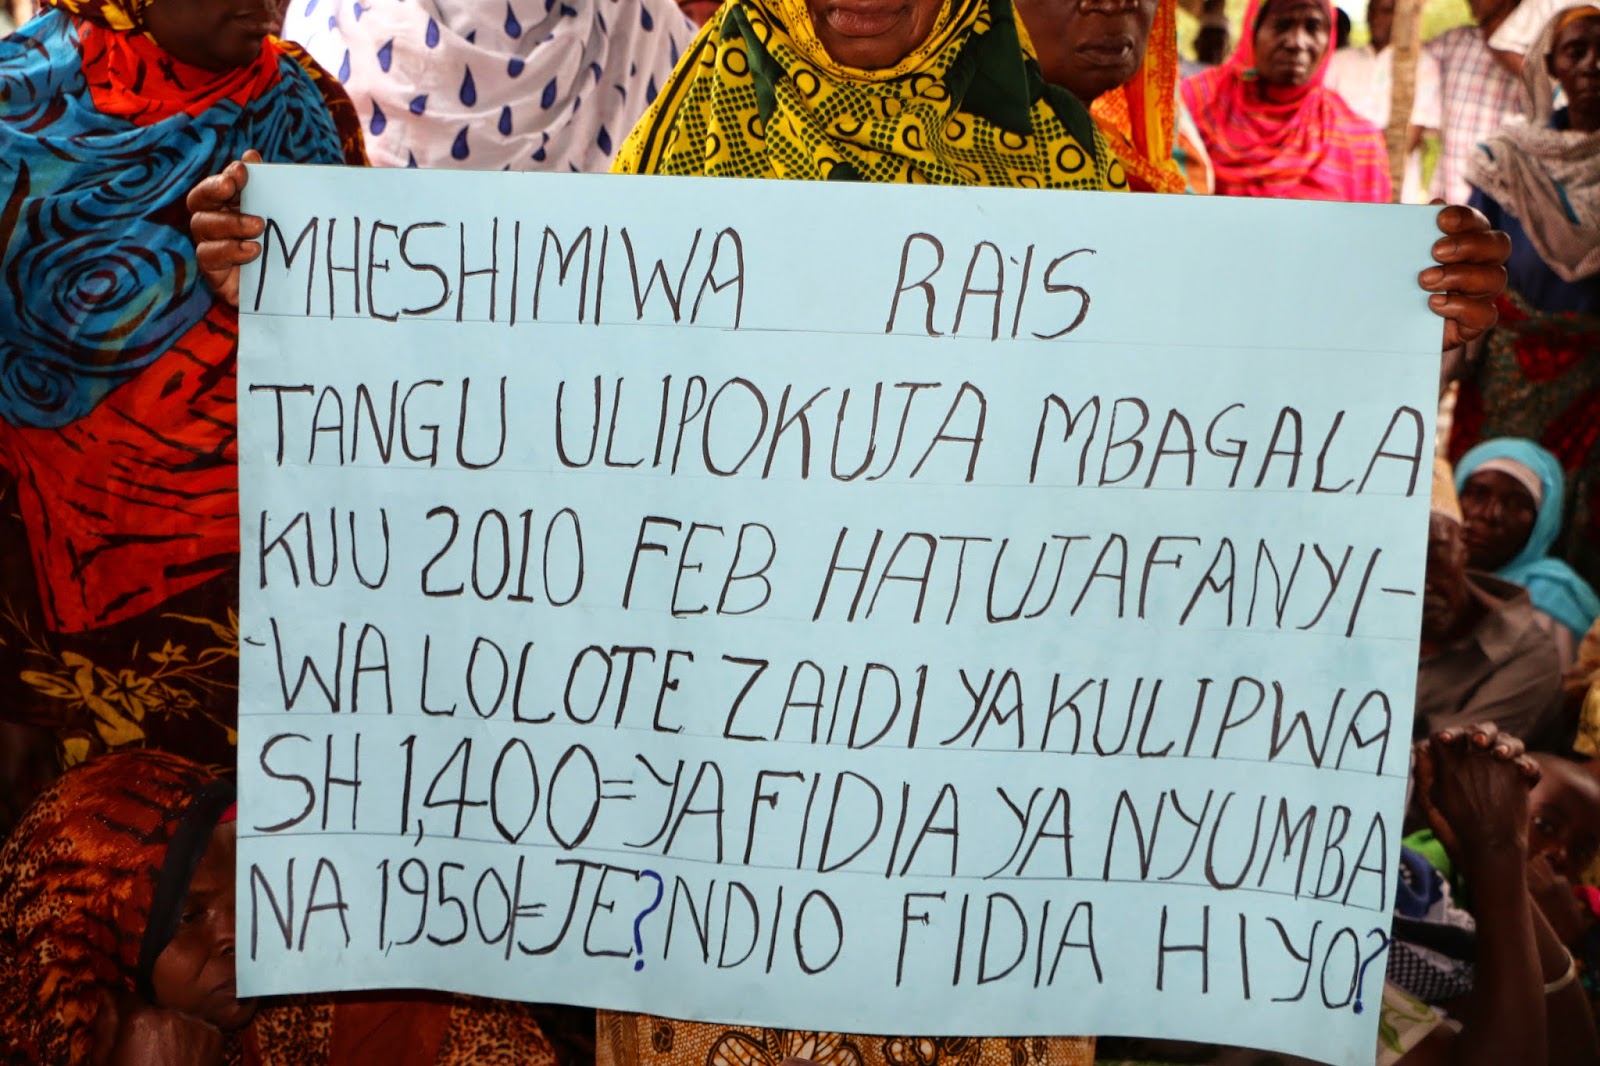 MHESHIMIWA RAIS
TANGU ULIPOKUJA MBAGALA
KUU 2010 FEB HATUJAFANYI-
-WA LOLOTE ZAIDI YA KULIPWA
SH 1,400= YA FIDIA YA NYUMBA
NA 1,950/= JE? NDIO FIDIA HIYO?